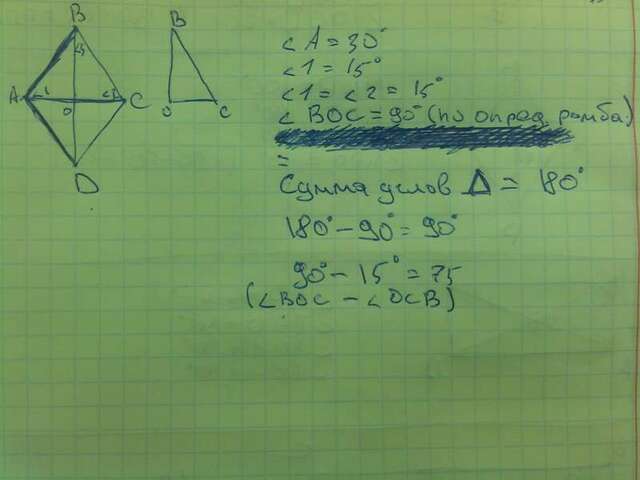 B
∠3
A
∠1
O
∠2
C
D
B
O
C
∠A = 30°
∠1 = 15°
∠1 = ∠2 = 15°
∠BOC = 90° (по опред. ромба.)
=
Сумма углов Δ = 180°
180° - 90° = 90°
90° - 15° = 75
(∠BOC - ∠OCB)